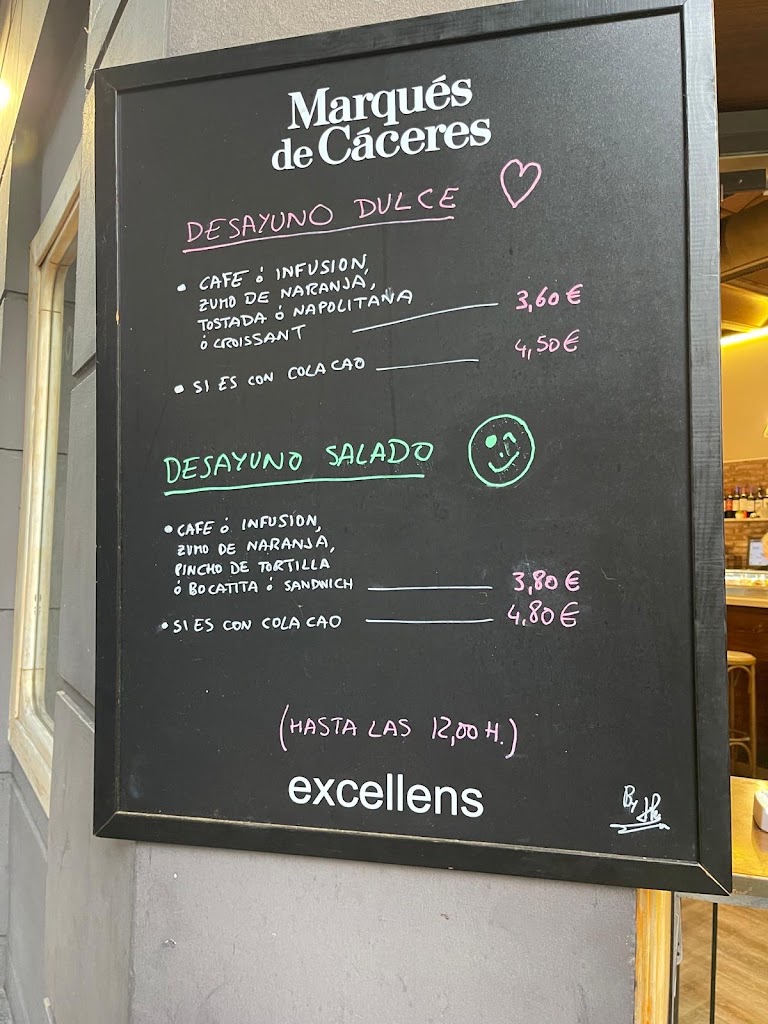 Marqués
de Cáceres
DESAYUNO DULCE
• CAFE ó INFUSION,
ZUMO DE NARANJA,
TOSTADA ó NAPOLITANA
ó CROISSANT 3,60 €
• SI ES CON COLA CAO 4,50 €
DESAYUNO SALADO
• CAFE ó INFUSION,
ZUMO DE NARANJA,
PINCHO DE TORTILLA
ó BOCATITA ó SANDWICH 3,80 €
• SI ES CON COLA CAO 4,80 €
(HASTA LAS 12,00 H.)
excellens
By